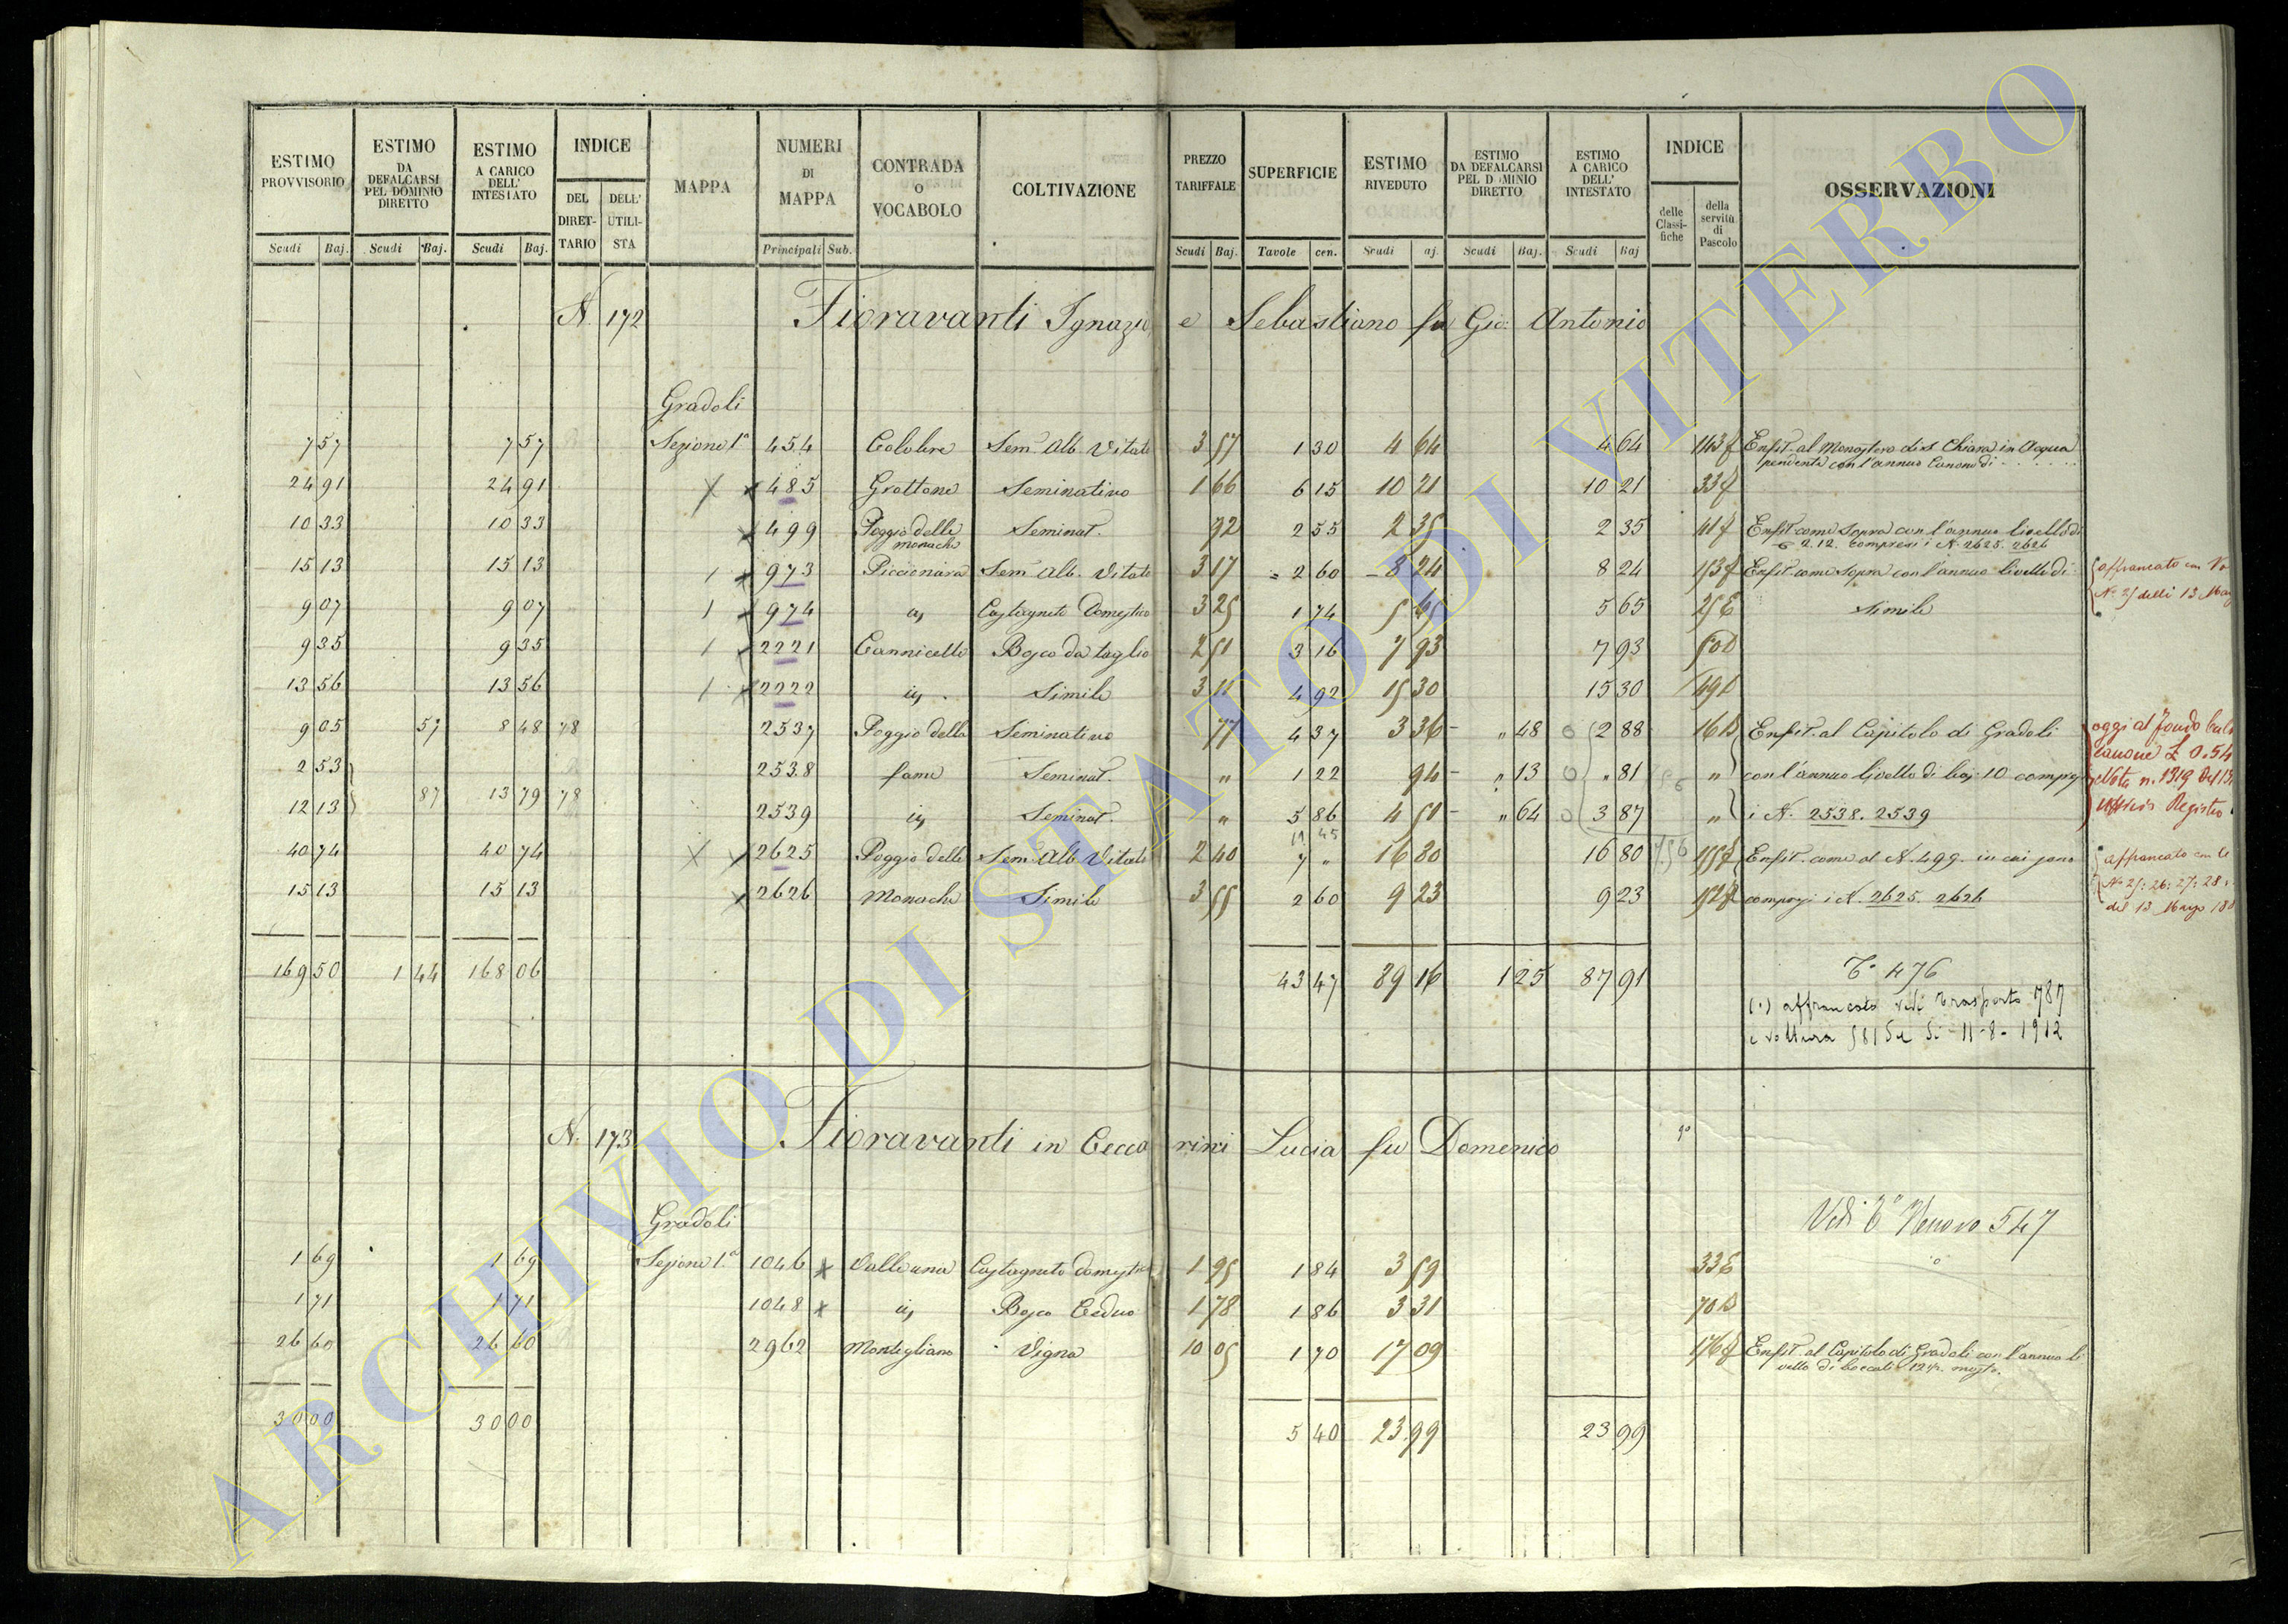 ESTIMO PROVVISORIO | ESTIMO DA DEFALCARSI PEL DOMINIO DIRETTO | ESTIMO A CARICO DELL' INTESTATO | INDICE DEL DIRETTARIO | DELL' UTILISTA | MAPPA | NUMERI DI MAPPA | CONTRADA O VOCABOLO | COLTIVAZIONE | PREZZO TARIFFALE | SUPERFICIE | ESTIMO RIVEDUTO | ESTIMO DA DEFALCARSI PEL DOMINIO DIRETTO | ESTIMO A CARICO DELL' INTESTATO | INDICE delle Classifiche | della servitù di Pascolo | OSSERVAZIONI
Scudi Baj. | Scudi Baj. | Scudi Baj. | Principali Sub. | Scudi Baj. | Tavole cen. | Scudi aj. | Scudi Baj. | Scudi Baj
N. 172 Fioravanti Ignazio e Sebastiano fu Gio: Antonio
Gradoli
7 57 | 7 57 | Sezione 1a | 454 | Colobre | Sem. Alb. Vitato | 3 57 | 1 30 | 4 64 | 4 64 | 143 f | Enfit. al Monastero di S. Chiara in Acqua
pendente con l'annuo Canone di
24 91 | 24 91 | 485 | Grottone | Seminativo | 1 66 | 6 15 | 10 21 | 10 21 | 33 f
10 33 | 10 33 | 499 | Poggio delle monache | Seminat. | 92 | 2 55 | 2 35 | 2 35 | 41 f | Enfit. come sopra con l'annuo livello di
2.12. compresi i N. 2625. 2626
15 13 | 15 13 | 1 | 973 | Piccionara | Sem. Alb. Vitato | 3 17 | 2 60 | 8 24 | 8 24 | 153 f | Enfit. come sopra con l'annuo livello di | affrancato con Vo
9 07 | 9 07 | 1 | 974 | a, | Castagneto Domestico | 3 25 | 1 74 | 5 65 | 5 65 | 25 E | Simile | No 25 delli 13 Mag
9 35 | 9 35 | 1 | 2221 | Cannicelle | Bosco da taglio | 2 51 | 3 16 | 7 93 | 7 93 | 50 D
13 56 | 13 56 | 1 | 2222 | id, | Simile | 3 11 | 4 92 | 15 30 | 15 30 | 49 D
9 05 | 57 | 8 48 | 78 | 2537 | Poggio della | Seminativo | 77 | 4 37 | 3 36 | " 48 | 2 88 | 16 D | Enfit. al Capitolo di Gradoli | oggi al Fondo Cul
2 53 | 2538 | fame | Seminat. | " | 1 22 | 94 | " 13 | " 81 | " | con l'annuo livello di baj: 10 compresi | canone £ 0.54
12 13 | 87 | 13 79 | 78 | 2539 | id, | Seminat. | " | 5 86 | 4 51 | " 64 | 3 87 | " | i N. 2538. 2539 | Nota n. 1319 del 13
Registro
11 45
40 74 | 40 74 | 2625 | Poggio delle | Sem. Alb. Vitato | 2 40 | 7 " | 16 80 | 16 80 | 155 f | Enfit. come al N. 499. in cui sono | affrancato con
15 13 | 15 13 | 2626 | Monache | Simile | 3 55 | 2 60 | 9 23 | 9 23 | 152 f | compresi i N. 2625. 2626 | No 25: 26: 27: 28
del 13 Mago 188
169 50 | 1 44 | 168 06 | 43 47 | 89 16 | 1 25 | 87 91 | To 476
(·) affrancato vedi trasporto 787
e voltura 581 11-8-1912
N. 173 Fioravanti in Ceccarini Lucia fu Domenico
Gradoli | Vedi To Nuovo 547
1 69 | 1 69 | Sezione 1.a | 1046 | Valleuna | Castagneto domestico | 1 95 | 1 84 | 3 59 | 33 E
1 71 | 1 71 | 1048 | id, | Bosco Ceduo | 1 78 | 1 86 | 3 31 | 70 D
26 60 | 26 60 | 2962 | Montigliano | Vigna | 10 05 | 1 70 | 17 09 | 176 f | Enfit. al Capitolo di Gradoli con l'annuo li
vello di boccali 12 ½. mosto.
30 00 | 30 00 | 5 40 | 23 99 | 23 99
ARCHIVIO DI STATO DI VITERBO